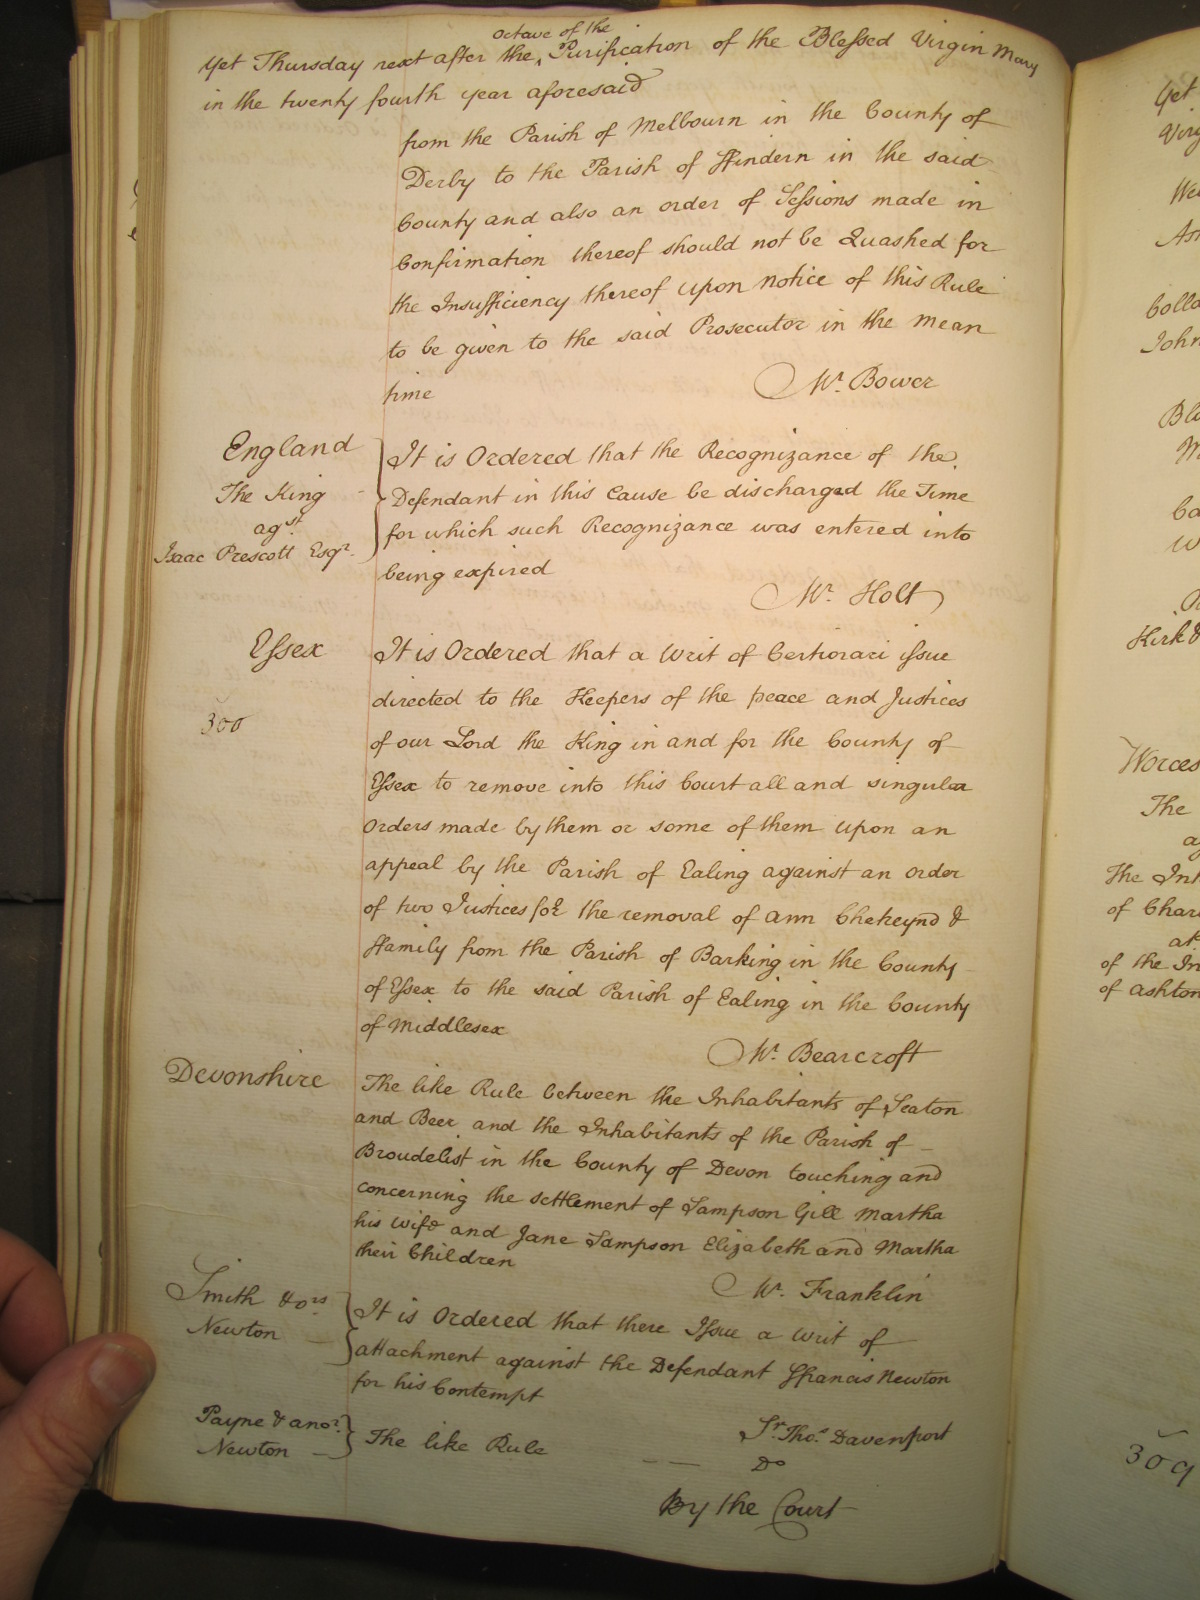 octave of the
Yet Thursday next after the ‸ Purification of the Blessed Virgin Mary
in the twenty fourth year aforesaid
from the Parish of Melbourn in the County of
Derby to the Parish of Ffindern in the said
County and also an order of Sessions made in
Confirmation thereof should not be Quashed for
the Insufficiency thereof upon notice of this Rule
to be given to the said Prosecutor in the mean
time
Mr. Bower
England
The King
agst.
Isaac Prescott Esqr.
It is Ordered that the Recognizance of the
Defendant in this Cause be discharged the Time
for which such Recognizance was entered into
being expired
Mr. Holt
Essex
300
It is Ordered that a Writ of Certiorari issue
directed to the Keepers of the peace and Justices
of our Lord the King in and for the County of
Essex to remove into this Court all and singular
Orders made by them or some of them upon an
appeal by the Parish of Ealing against an order
of two Justices for the removal of Ann Chekeynd &
ffamily from the Parish of Barking in the County
of Essex to the said Parish of Ealing in the County
of Middlesex
Mr. Bearcroft
Devonshire
The like Rule between the Inhabitants of Seaton
and Beer and the Inhabitants of the Parish of
Broudelist in the County of Devon touching and
concerning the settlement of Sampson Gill Martha
his Wife and Jane Sampson Elizabeth and Martha
their Children
Mr. Franklin
Smith & ors.
Newton
It is Ordered that there Issue a Writ of
attachment against the Defendant Ffrancis Newton
for his Contempt
Sr. Thos. Davenport
Payne & anor.
Newton
The like Rule
Do
By the Court
Yet
Wor­ces
The
of Char
at
of the In
of Ashton
John
Kirk &
309